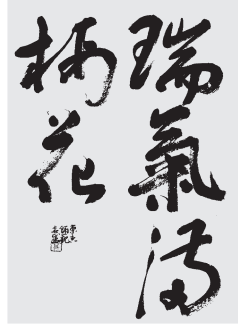 瑞氣滿
梅花